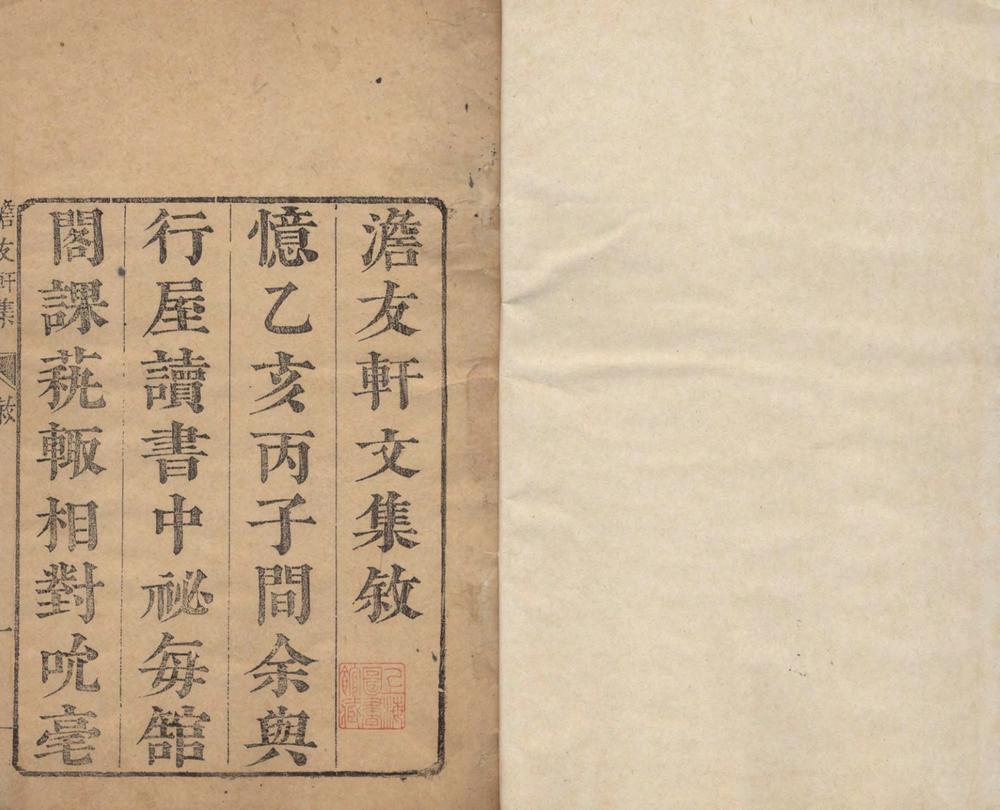 澹友軒文集敘
憶乙亥丙子間余與
行屋讀書中祕每舘
閣課蓺輙相對吮毫
上海圖書館藏
澹友軒集
敘
一